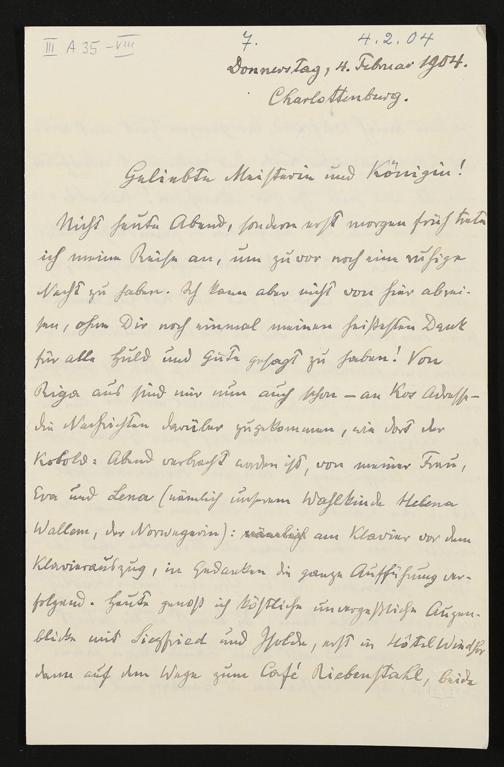 III A 35 - VIII
7.
4.2.04
Donnerstag, 4. Februar 1904.
Charlottenburg.
Geliebte Meisterin und Königin!
Nicht heute Abend, sondern erst morgen früh trete
ich meine Reise an, um zuvor noch eine ruhige
Nacht zu haben. Ich kann aber nicht von hier abrei-
sen, ohne Dir noch einmal meinen heißesten Dank
für alle Huld und Güte gesagt zu haben! Von
Riga aus sind mir nun auch schon – an Kos Adresse –
die Nachrichten darüber zugekommen, wie dort der
Kobold-Abend verbracht worden ist, von meiner Frau,
Eva und Lena (nämlich unserem Wahlkinde Helena
Wallem, der Norwegerin): am Klavier vor dem
Klavierauszug, in Gedanken die ganze Aufführung ver-
folgend. Heute genoß ich köstliche unvergeßliche Augen-
blicke mit Siegfried und Isolde, erst in Hôtel Windsor
dann auf dem Wege zum Café Riebenstahl, beide